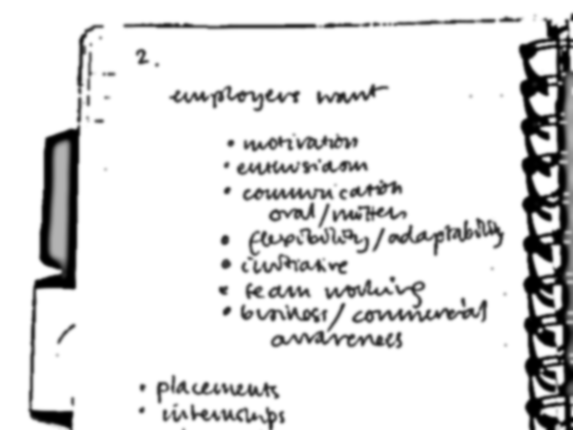 2.
employers want
• motivation
• enthusiasm
• communication
oral/written
• flexibility/adaptability
• initiative
• team working
• business/commercial
awareness
• placements
• internships